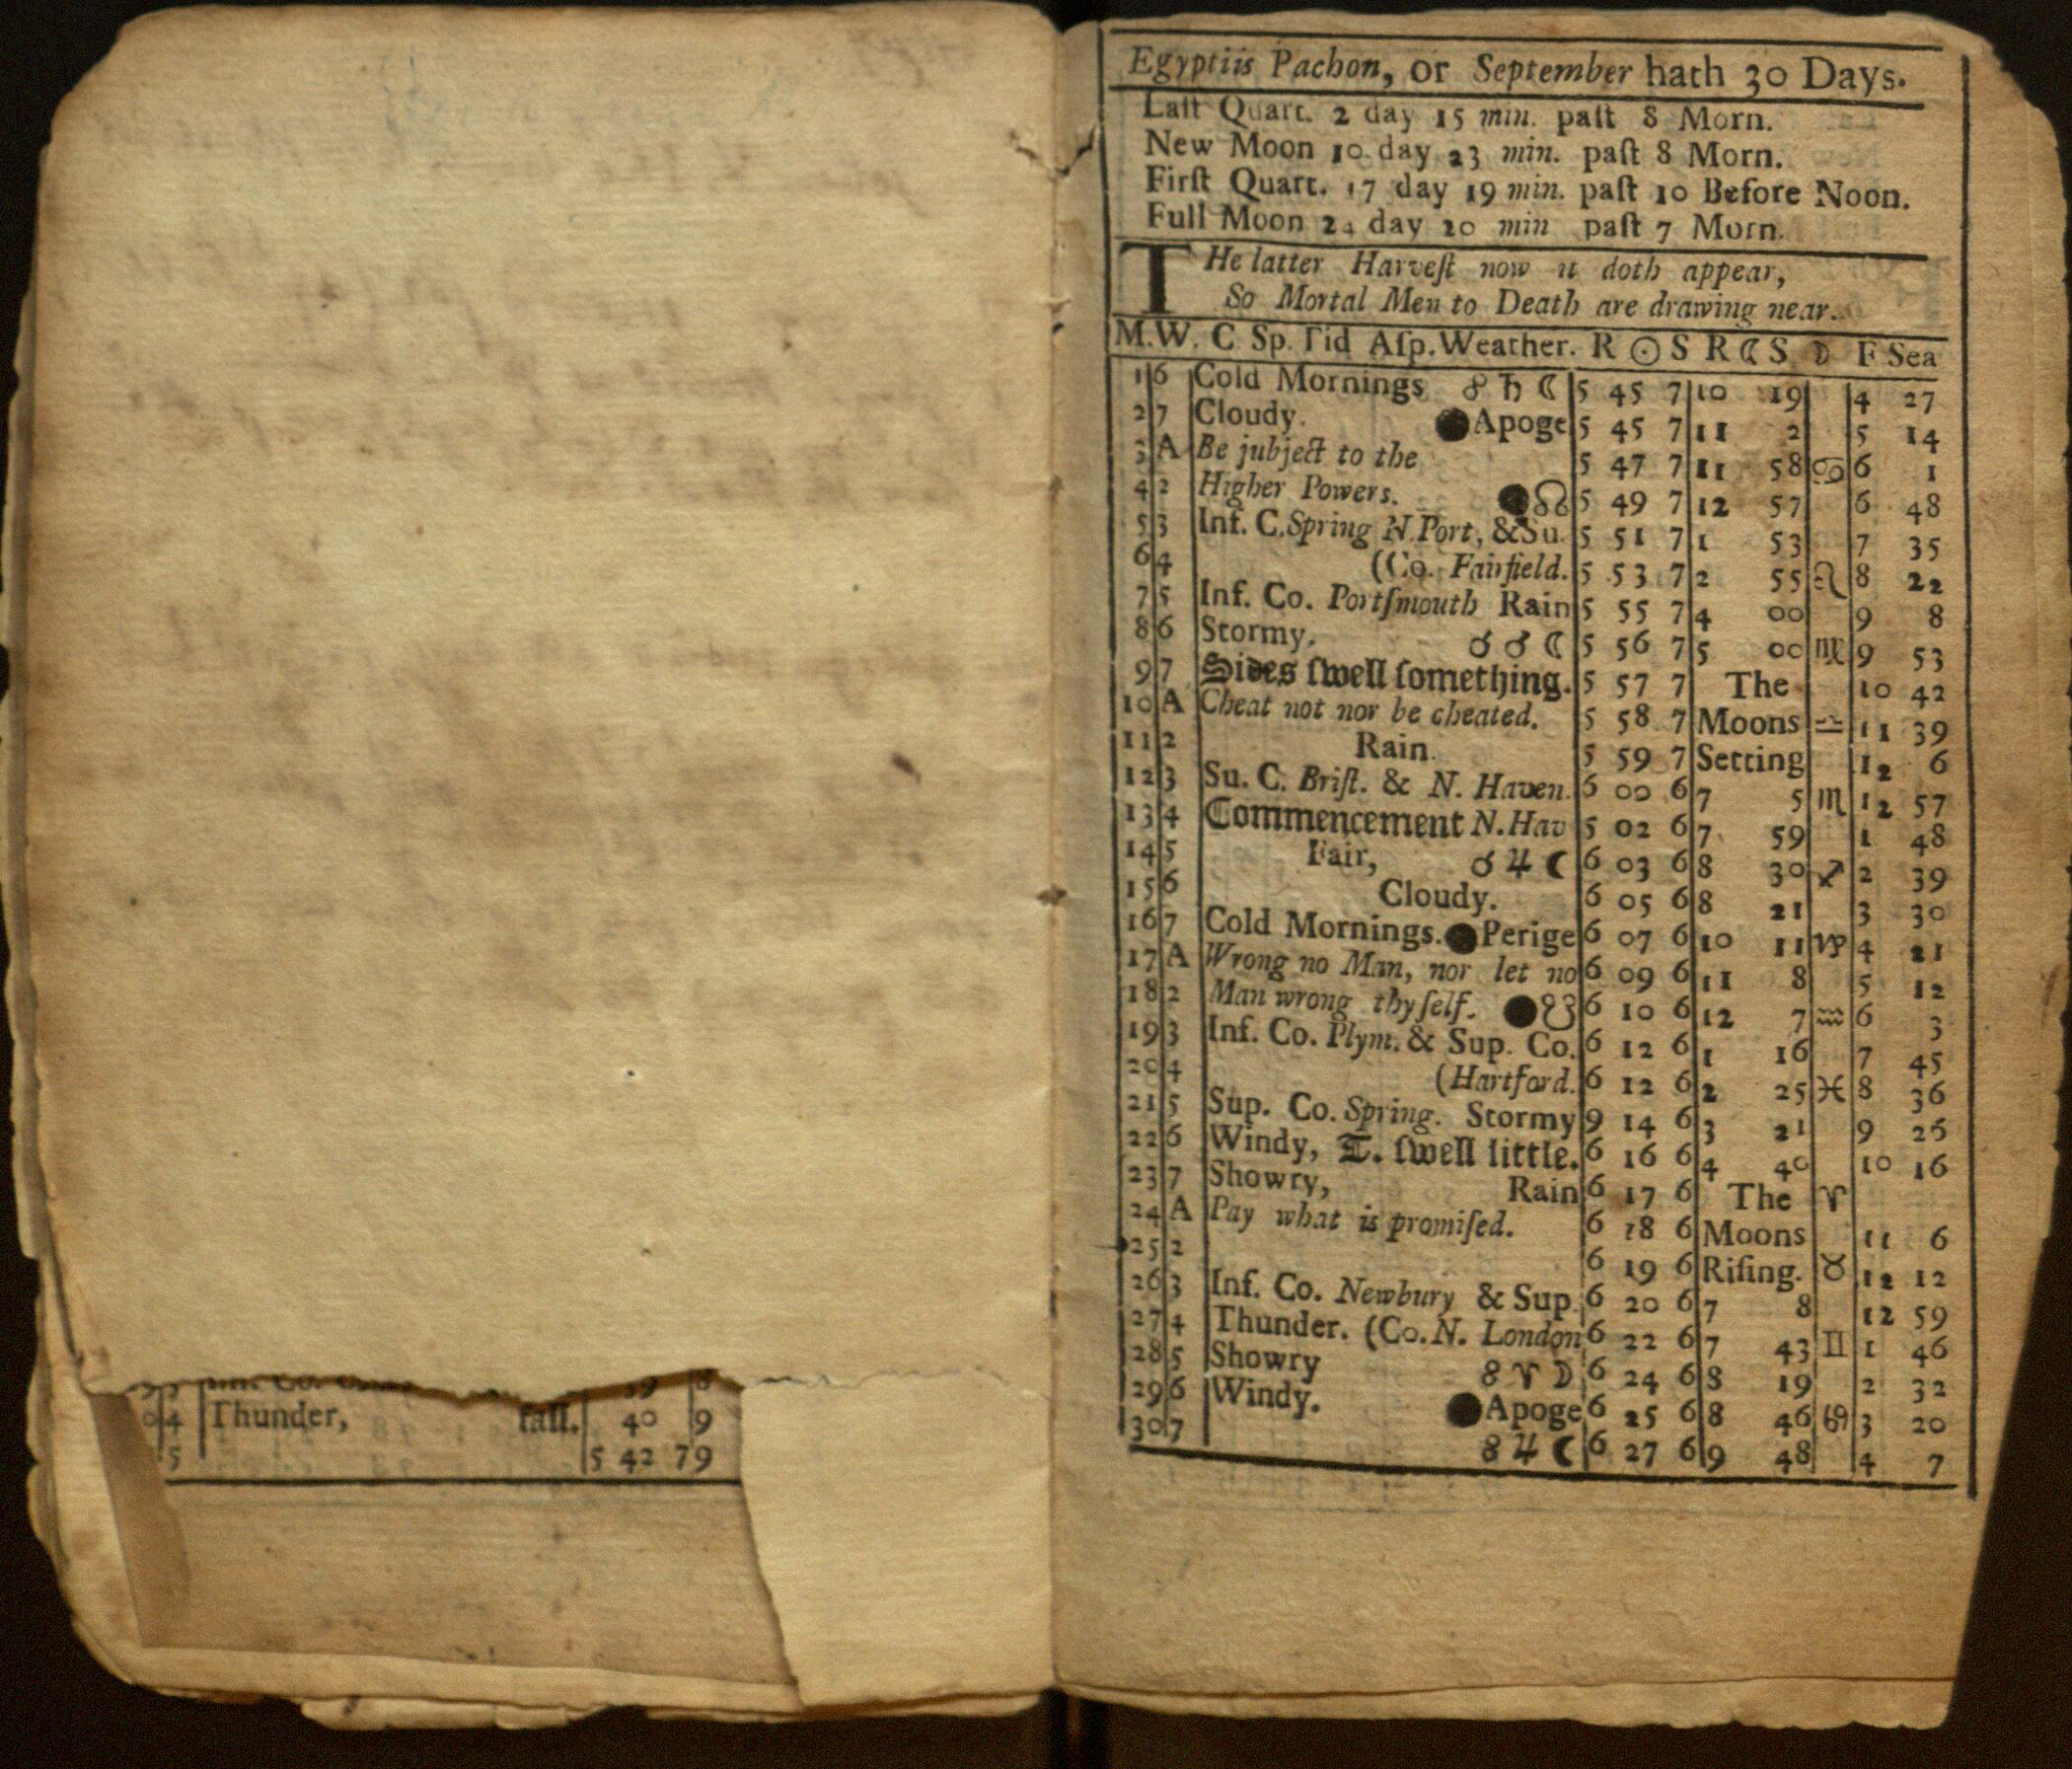 Thunder, fall. 40 9
5 5 42 79
Egyptiis Pachon, or September hath 30 Days.
Laſt Quart. 2 day 15 min. paſt 8 Morn.
New Moon 10 day 23 min. paſt 8 Morn.
Firſt Quart. 17 day 19 min. paſt 10 Before Noon.
Full Moon 24 day 20 min paſt 7 Morn.
THe latter Harveſt now it doth appear,
So Mortal Men to Death are drawing near.
M.W. C Sp. Tid Aſp. Weather. R ☉ S R ☾ S ☽ F Sea
1 6 Cold Mornings ☍ ♄ ☾ 5 45 7 10 19 4 27
2 7 Cloudy. ●Apoge 5 45 7 11 2 5 14
3 A Be ſubject to the 5 47 7 11 58 ♋ 6 1
4 2 Higher Powers. ●☊ 5 49 7 12 57 6 48
5 3 Inf. C. Spring N. Port, & Su. 5 51 7 1 53 7 35
6 4 (Co. Fairfield. 5 53 7 2 55 ♌ 8 22
7 5 Inf. Co. Portſmouth Rain 5 55 7 4 00 9 8
8 6 Stormy. ☌ ♂ ☾ 5 56 7 5 00 ♍ 9 53
9 7 Sides ſwell ſomething. 5 57 7 The 10 42
10 A Cheat not nor be cheated. 5 58 7 Moons ♎ 11 39
11 2 Rain. 5 59 7 Setting 12 6
12 3 Su. C. Briſt. & N. Haven. 6 00 6 7 5 ♏ 12 57
13 4 Commencement N. Hav 5 02 6 7 59 1 48
14 5 Fair, ☌ ♃ ☾ 6 03 6 8 30 ♐ 2 39
15 6 Cloudy. 6 05 6 8 21 3 30
16 7 Cold Mornings. ●Perige 6 07 6 10 11 ♑ 4 21
17 A Wrong no Man, nor let no 6 09 6 11 8 5 12
18 2 Man wrong thy ſelf. ●☋ 6 10 6 12 7 ♒ 6 3
19 3 Inf. Co. Plym. & Sup. Co. 6 12 6 1 16 7 45
20 4 (Hartford. 6 12 6 2 25 ♓ 8 36
21 5 Sup. Co. Spring. Stormy 9 14 6 3 21 9 26
22 6 Windy, T. ſwell little. 6 16 6 4 40 10 16
23 7 Showry, Rain 6 17 6 The ♈
24 A Pay what is promiſed. 6 18 6 Moons 11 6
25 2 6 19 6 Riſing. ♉ 12 12
26 3 Inf. Co. Newbury & Sup. 6 20 6 7 8 12 59
27 4 Thunder. (Co. N. London 6 22 6 7 43 ♊ 1 46
28 5 Showry ☍ ♈ ☽ 6 24 6 8 19 2 32
29 6 Windy. ●Apoge 6 25 6 8 46 ♋ 3 20
30 7 ☍ ♃ ☾ 6 27 6 9 48 4 7